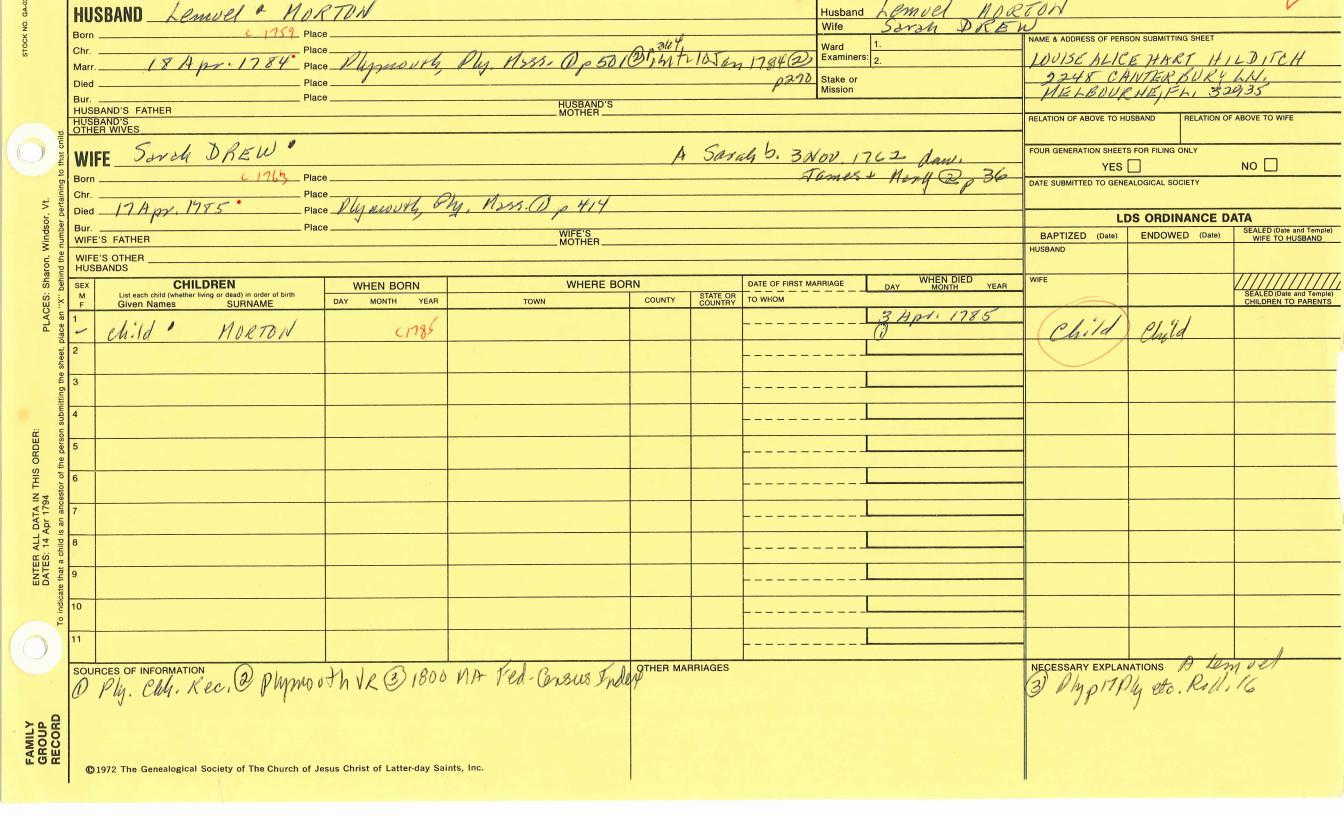 STOCK NO. GA-0
HUSBAND Lemuel MORTON
Husband Lemuel MORTON
Wife Sarah DREW
Born c 1759 Place
Chr. Place
Ward Examiners: 1. 2.
Marr. 18 Apr. 1784 Place Plymouth, Ply. Mass. ① p 501 ② int 10 Jan 1784 ②
p270
Died Place
Stake or Mission
Bur. Place
HUSBAND'S FATHER HUSBAND'S MOTHER
HUSBAND'S OTHER WIVES
NAME & ADDRESS OF PERSON SUBMITTING SHEET
LOUISE ALICE HART HILDITCH
2248 CANTERBURY LN.
MELBOURNE, FL. 32935
RELATION OF ABOVE TO HUSBAND RELATION OF ABOVE TO WIFE
WIFE Sarah DREW
A Sarah b. 3 NOV. 1762 dau.
James + Mary ② p 36
Born c 1763 Place
Chr. Place
Died 17 Apr. 1785 Place Plymouth, Ply. Mass. ① p 414
Bur. Place
WIFE'S FATHER WIFE'S MOTHER
WIFE'S OTHER HUSBANDS
FOUR GENERATION SHEETS FOR FILING ONLY
YES NO
DATE SUBMITTED TO GENEALOGICAL SOCIETY
LDS ORDINANCE DATA
BAPTIZED (Date) ENDOWED (Date) SEALED (Date and Temple) WIFE TO HUSBAND
HUSBAND
WIFE
SEALED (Date and Temple) CHILDREN TO PARENTS
SEX M F
CHILDREN
List each child (whether living or dead) in order of birth
Given Names SURNAME
WHEN BORN
DAY MONTH YEAR
WHERE BORN
TOWN COUNTY STATE OR COUNTRY
DATE OF FIRST MARRIAGE
TO WHOM
WHEN DIED
DAY MONTH YEAR
1 child MORTON c1785 3 Apr. 1785 ① Child Child
2
3
4
5
6
7
8
9
10
11
SOURCES OF INFORMATION
① Ply. Chh. Rec. ② Plymouth VR ③ 1800 MA Fed. Census Index
OTHER MARRIAGES
NECESSARY EXPLANATIONS A Lemuel
③ Ply p 17 Ply etc. Roll. 16
©1972 The Genealogical Society of The Church of Jesus Christ of Latter-day Saints, Inc.
FAMILY GROUP RECORD
ENTER ALL DATA IN THIS ORDER:
DATES: 14 Apr 1794
PLACES: Sharon, Windsor, Vt.
To indicate that a child is an ancestor of the person submitting the sheet, place an "X" behind the number pertaining to that child.